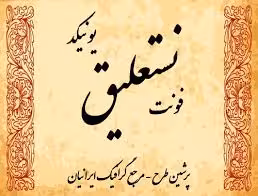 فونت
نستعلیق
یونیکد
پرشین طرح - مرجع گرافیک ایرانیان